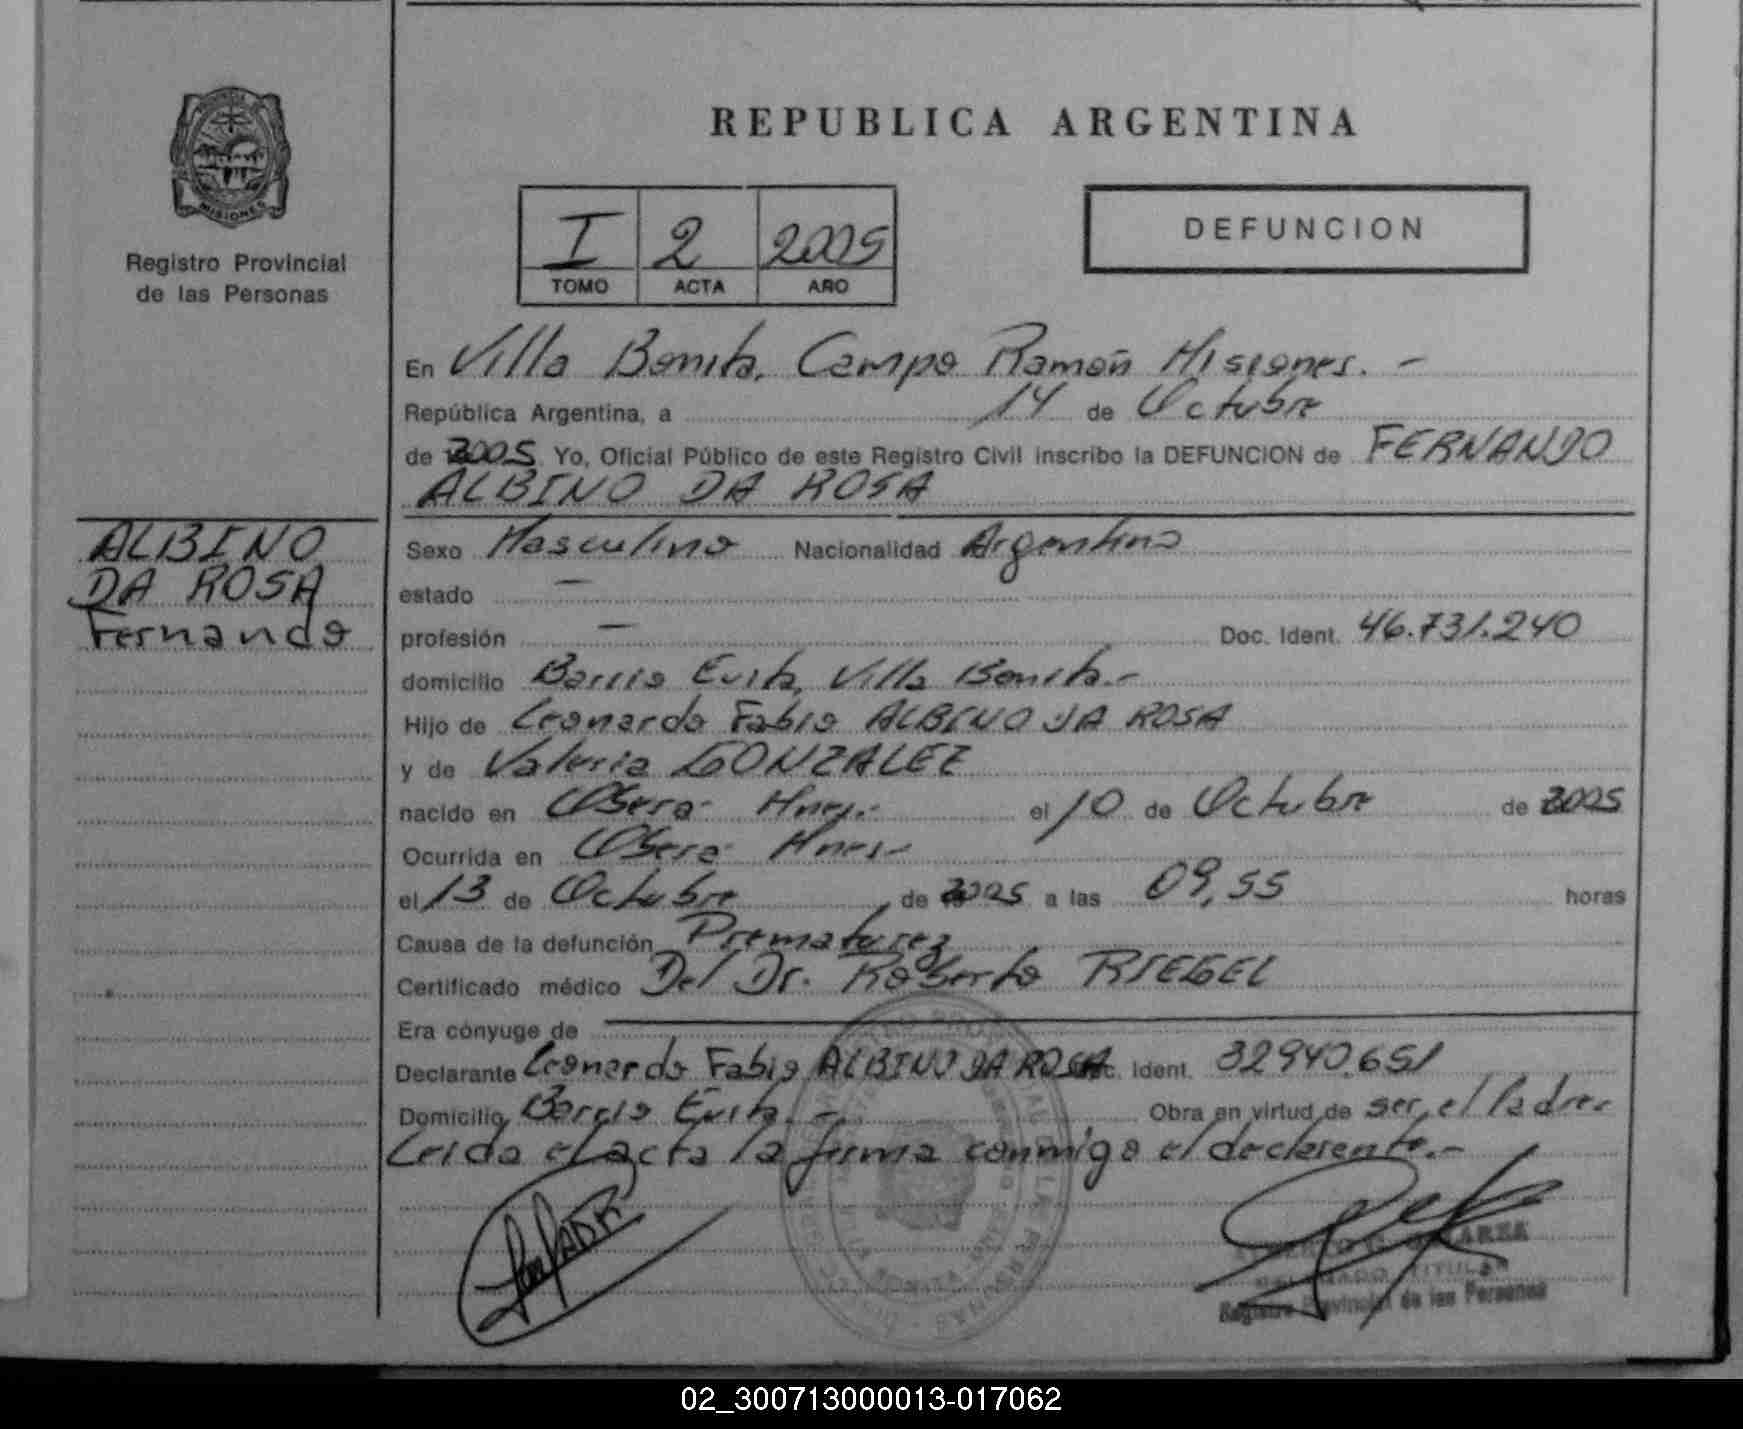 REPUBLICA ARGENTINA
PROVINCIA DE
MISIONES
Registro Provincial
de las Personas
I 2 2005
TOMO ACTA AÑO
DEFUNCION
En Villa Bonita, Campo Ramón Misiones. -
República Argentina, a 14 de Octubre
de 2005 Yo, Oficial Público de este Registro Civil inscribo la DEFUNCION de FERNANDO
ALBINO DA ROSA
ALBINO
DA ROSA
Fernando
Sexo Masculino Nacionalidad Argentino
estado —
profesión — Doc. Ident. 46.731.240
domicilio Barrio Evita, Villa Bonita.-
Hijo de Leonardo Fabio ALBINO DA ROSA
y de Valeria GONZALEZ
nacido en Oberá Mnes.- el 10 de Octubre de 2005
Ocurrida en Oberá Mnes.-
el 13 de Octubre de 2005 a las 09,55 horas
Causa de la defunción Prematurez
Certificado médico Del Dr. Roberto RIEGEL
Era cónyuge de
Declarante Leonardo Fabio ALBINO DA ROSA Doc. Ident. 32940.651
Domicilio Barrio Evita. - Obra en virtud de ser el Padre-
Leida el acta la firma conmigo el declarante.-
TITULAR
Registro Provincial de las Personas
02_300713000013-017062